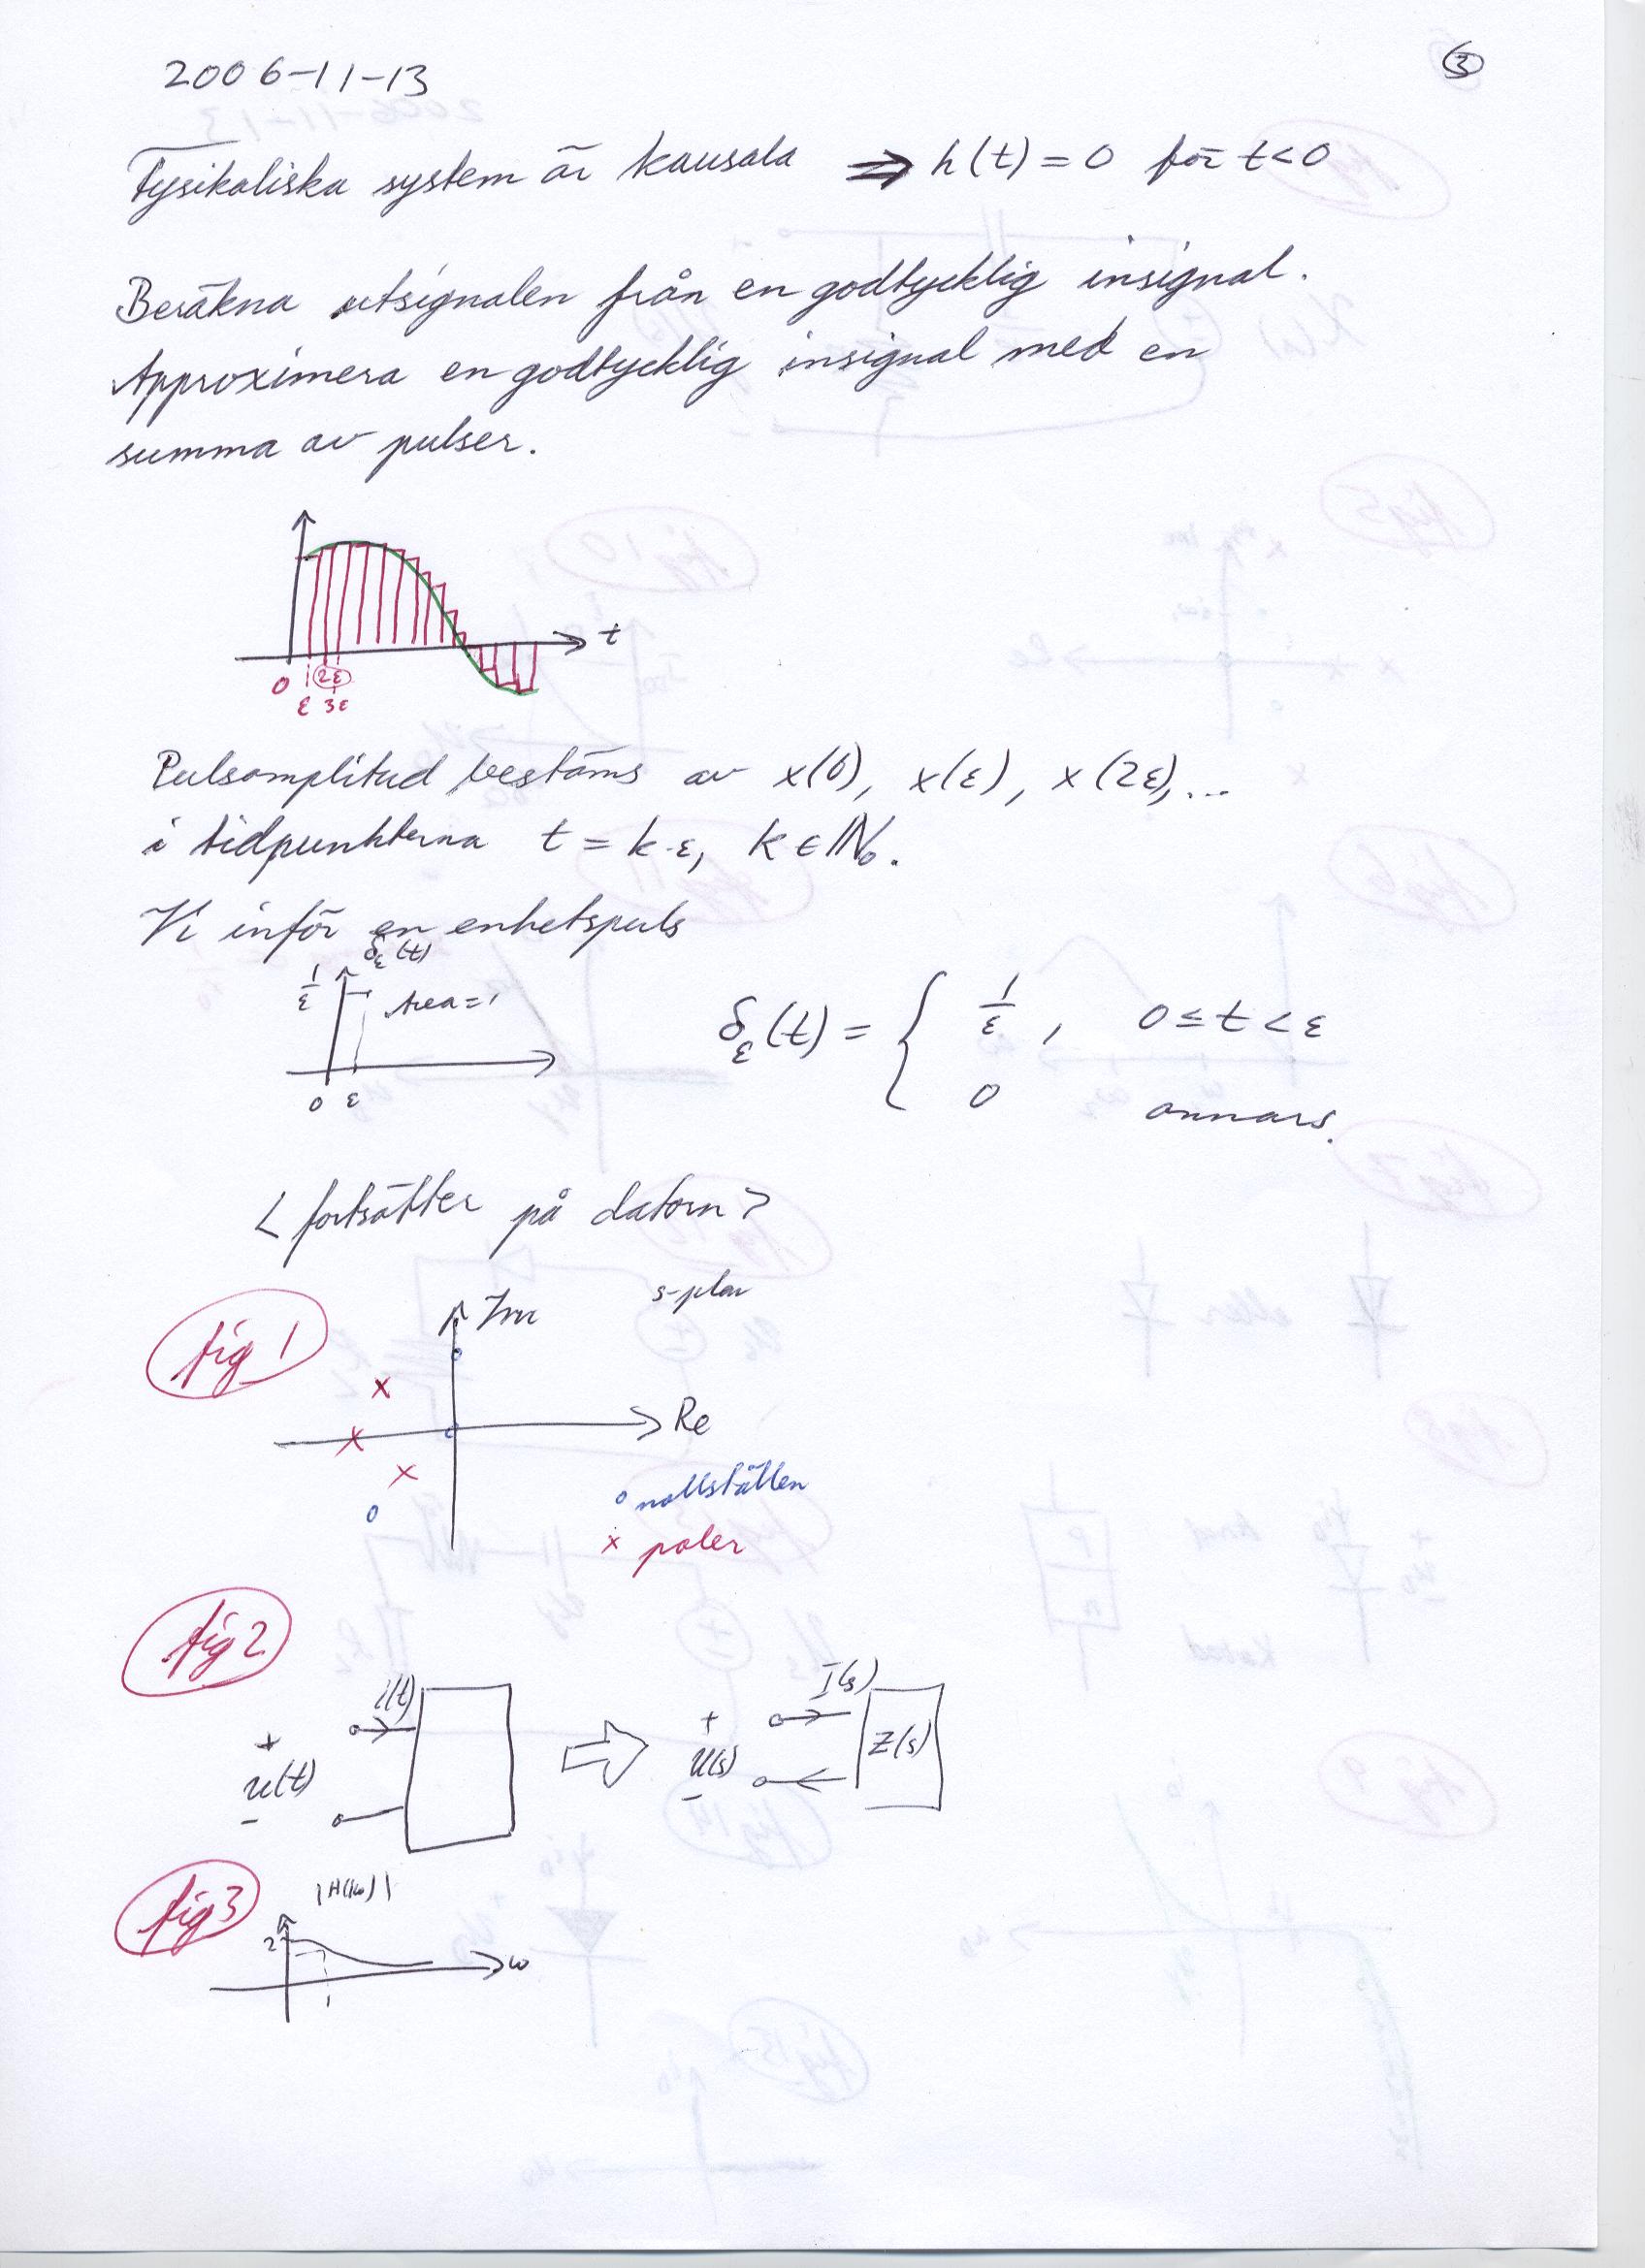 2006-11-13
3
Fysikaliska system är kausala ⇒ h(t) = 0 för t<0
Beräkna utsignalen från en godtycklig insignal.
Approximera en godtycklig insignal med en
summa av pulser.
t
0 ε 2ε 3ε
Pulsamplitud bestäms av x(0), x(ε), x(2ε),...
i tidpunkterna t = k·ε, k ∈ ℕ₀.
Vi inför en enhetspuls
δε(t)
1/ε Area=1
0 ε
δε(t) = { 1/ε , 0 ≤ t < ε
0 annars.
< fortsätter på datorn >
fig 1
Im s-plan
Re
o nollställen
x poler
fig 2
i(t) I(s)
+ u(t) - + U(s) - Z(s)
fig 3
|H(jω)|
2
1
ω